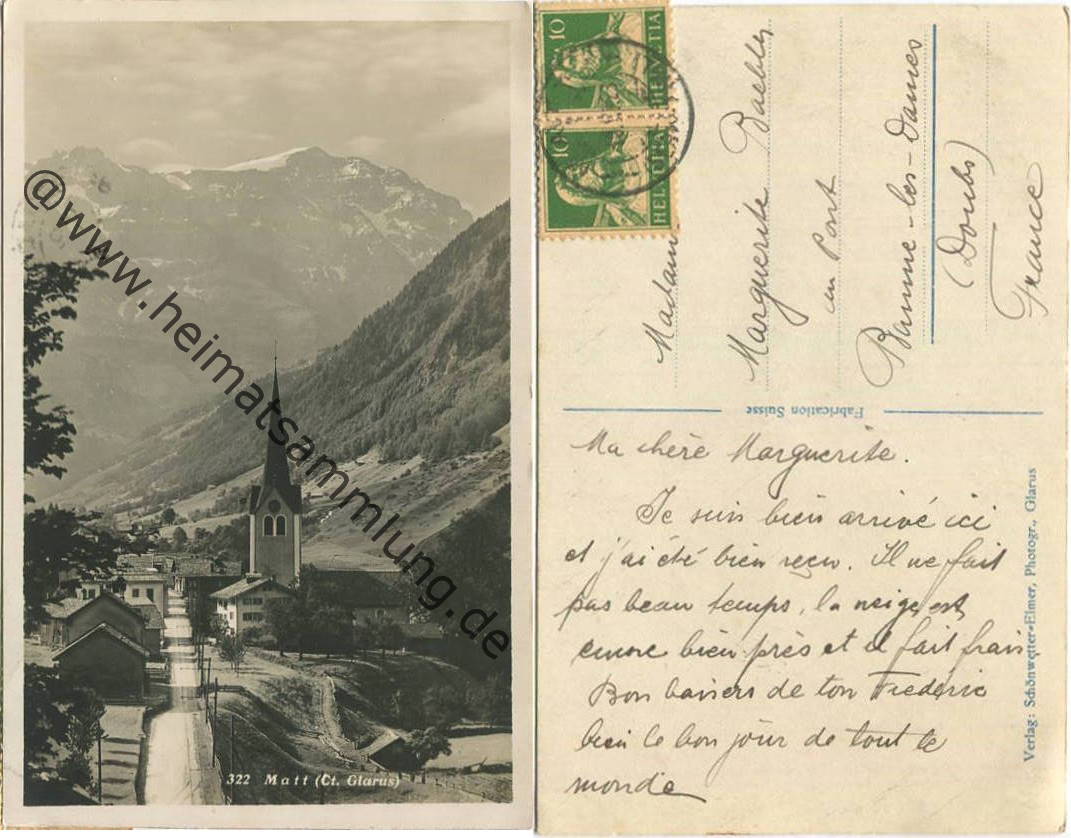 @www.heimatsammlung.de
322 Matt (Ct. Glarus)
10
HELVETIA
10
HELVETIA
Madame
Marguerite Baebler
au Pont
Baume-les-Dames
(Doubs)
France
Fabrication Suisse
Ma chère Marguerite.
Je suis bien arrivé ici
et j'ai été bien reçu. Il ne fait
pas beau temps, la neige est
encore bien près et il fait frais
Bon baisers de ton Frederic
bien le bon jour de tout le
monde
Verlag: Schönwetter-Elmer, Photogr., Glarus